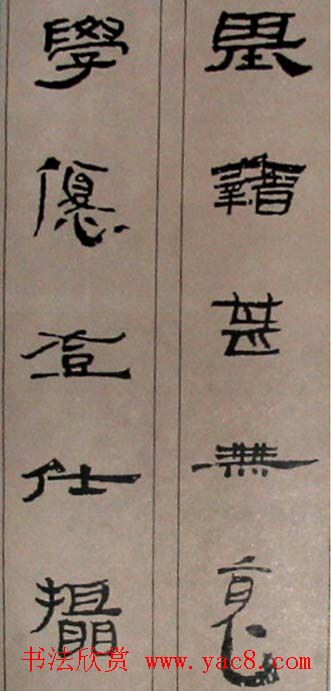 基籍甚無竟
學優登仕攝
书法欣赏 www.yac8.com